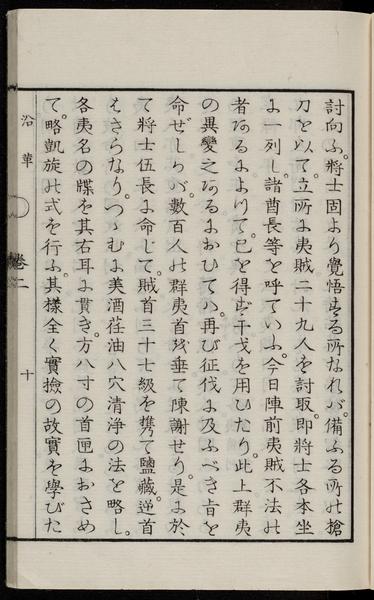 討向ふ。將士固より覺悟する所なれバ。備ふる所の槍
刀を以て。立所に夷賊二十九人を討取。即將士各本坐
に一列し。諸酋長等を呼ていふ。今日陣前夷賊不法の
者あるによりて。已を得ず干戈を用ひたり。此上群夷
の異變之あるにおひてハ。再び征伐に及ふべき旨を
命ぜしかバ。數百人の群夷首を垂て陳謝せり。是に於
て將士伍長に命じて。賊首三十七級を携て鹽藏。逆首
はさらなり。つゝむに美酒荏油八穴清浄の法を略し。
各夷名の牒を其右耳に貫き。方八寸の首匣におさめ
て。略凱旋の式を行ふ。其樣全く實撿の故實を學びた
沿革
卷二
十